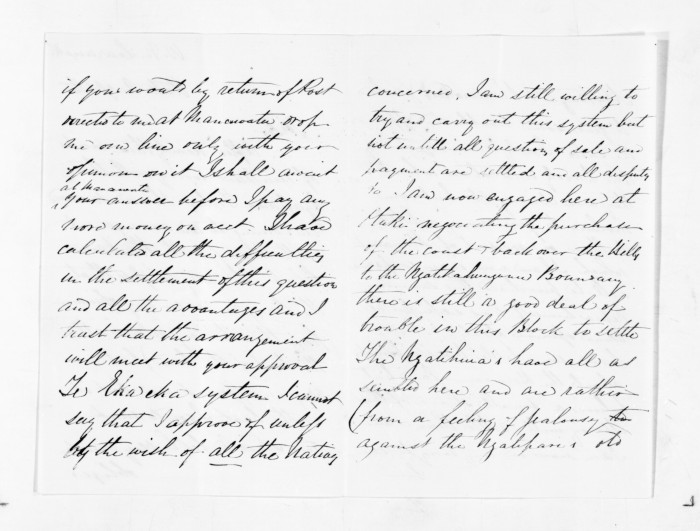 if you would by return of Post
directed to me at Manawatu drop
me one line only with your
opinion on it I shall await
at Manawatu
your answer before I pay any
more money on acct I have
calculated all the difficulties
in the settlement of this question
and all the advantages and I
trust that the arrangement
will meet with your approval
Te system I cannot
say that I approve of unless
by the wish of all the Natives
concerned. I am still willing to
try and carry out this system but
not until all question of sale and
payment are settled and all disputes
I am now engaged here at
negociating the purchase
of the coast & back over the Hills
to the Boundary
there is still a good deal of
trouble in this Block to settle
The have all as
sembled here and are rather
(from a feeling of jealousy to
against the old